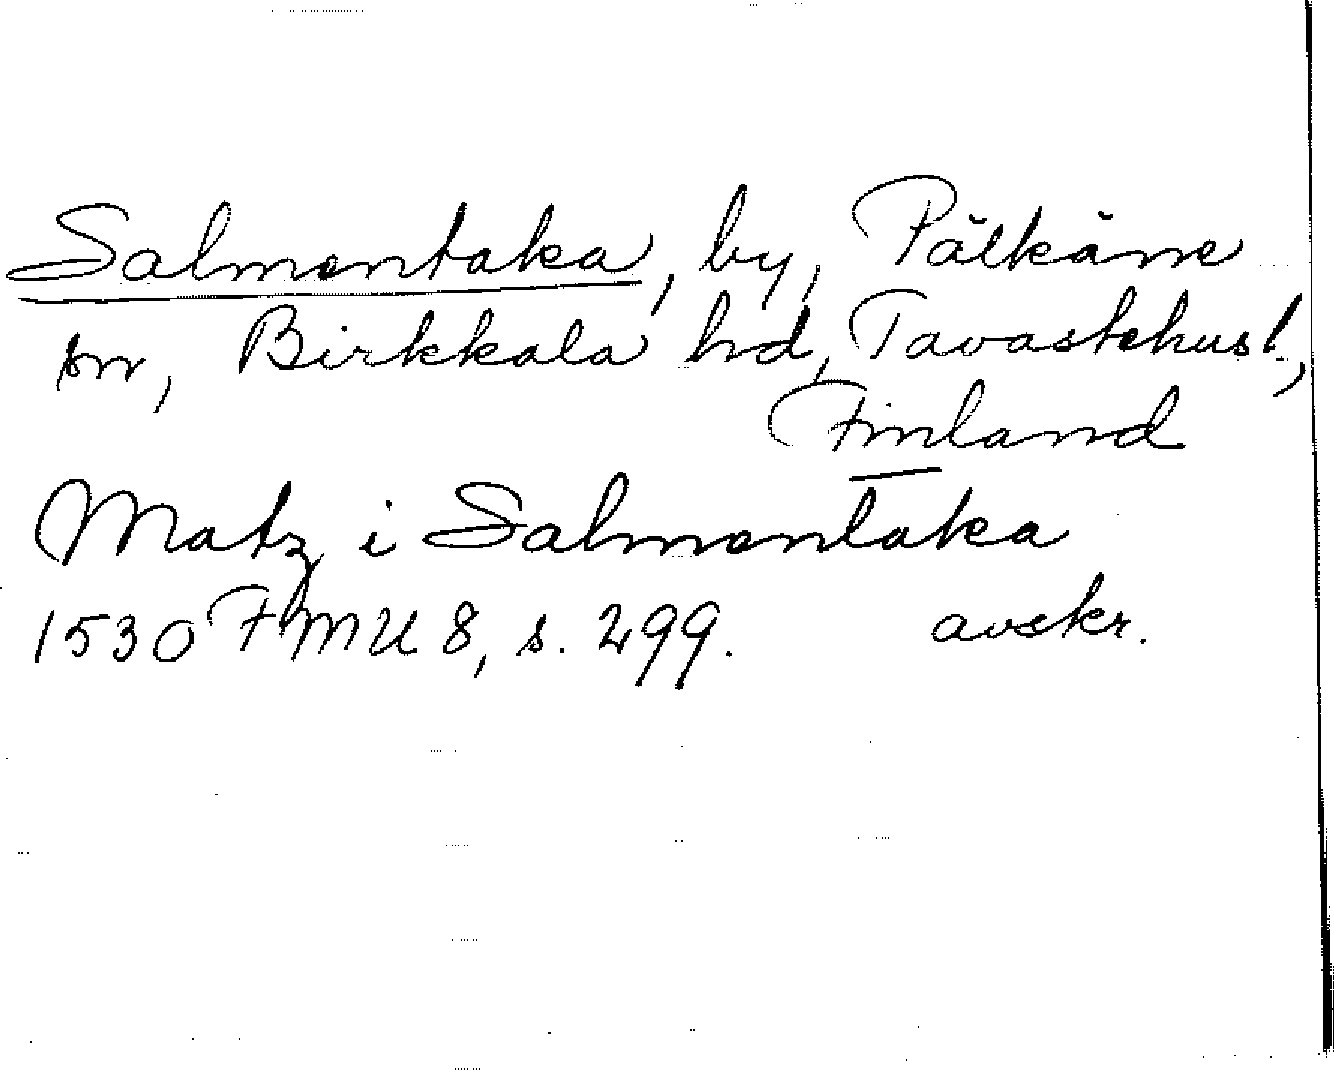 Salmentaka, by, Pälkäne
sn, Birkkala hd, Tavastehus l.,
Finland
Matz i Salmentaka
1530 FMU 8, s. 299. avskr.